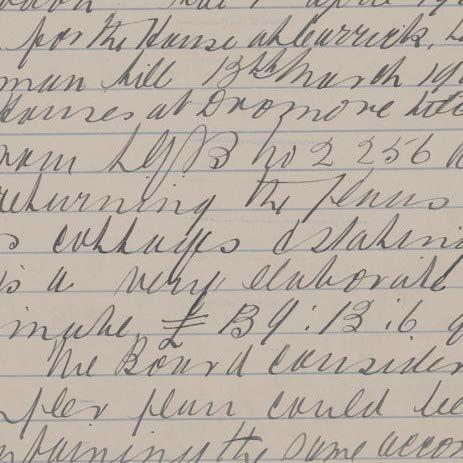 for the House at Carrick,
man till 13th March 19
Houses at Dromore
ram LGB No 2256
returning the plans
s cottages & stating
is a very elaborate
imate £139:13:6
The Board consider
pler plan could be
ntaining the same accom